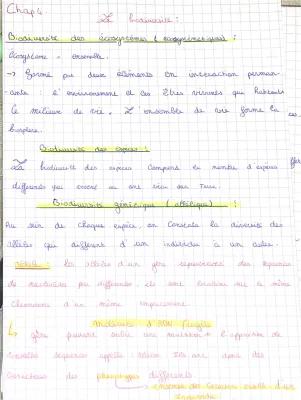 Chap 4
La biodiversité :
Biodiversité des écosystèmes (écosystémique) :
écosystème = ensemble
→ formé par deux éléments en interaction perman-
ante. L'environnement et les êtres vivants qui habitent
ce milieu de vie. L'ensemble de vie forme la
biosphère.
Biodiversité des espèces :
La biodiversité des espèces comprend le nombre d'espèces
différentes qui existe sur Terre.
Biodiversité génétique (allélique) :
Au sein de chaque espèce, on constate la diversité des
allèles qui diffèrent d'un individu à un autre.
allèle : les allèles d'un gène
de nucléotides différentes : ils sont localisés sur le même
chromosome à un même emplacement.
molécule d'ADN fragile
↳ gène peuvent subir une mutation = l'apparition de
nouvelles séquences appelés allèles. Ils ont donc des
caractères des phénotypes différents
→ ensemble des caractères visible d'un
individu